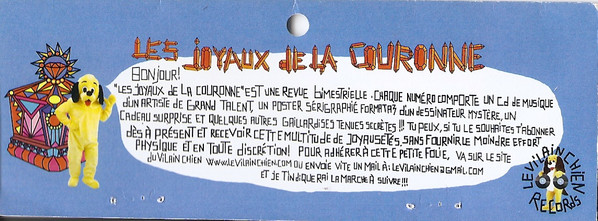 LES JOYAUX de LA COURONNE
BONJOUR!
"LES JOYAUX DE LA COURONNE" EST UNE REVUE BIMESTRIELLE. CHAQUE NUMÉRO COMPORTE UN Cd DE MUSIQUE
d'UN ARTISTE DE GRAND TALENT, UN POSTER SÉRIGRAPHIÉ FORMAT A3 d'UN DESSINATEUR MYSTÈRE, UN
CADEAU SURPRISE ET QUELQUES AUTRES GAILLARDISES TENUES SECRÈTES!! TU PEUX, SI TU LE SOUHAITES T'ABONNER
DÈS À PRÉSENT ET RECEVOIR CETTE MULTITUDE DE JOYAUSETÉS, SANS FOURNIR LE MOINDRE EFFORT
PHYSIQUE ET EN TOUTE DISCRÉTION! POUR ADHÉRER À CETTE PETITE FOLIE, VA SUR LE SITE
DU VILAIN CHIEN WWW.LEVILAINCHIEN.COM OU ENVOIE VITE UN MAIL À: LEVILAINCHIEN@GMAIL.COM
ET JE T'INDIQUERAI LA MARCHE À SUIVRE!!!
LE VILAIN CHIEN
RECORDS